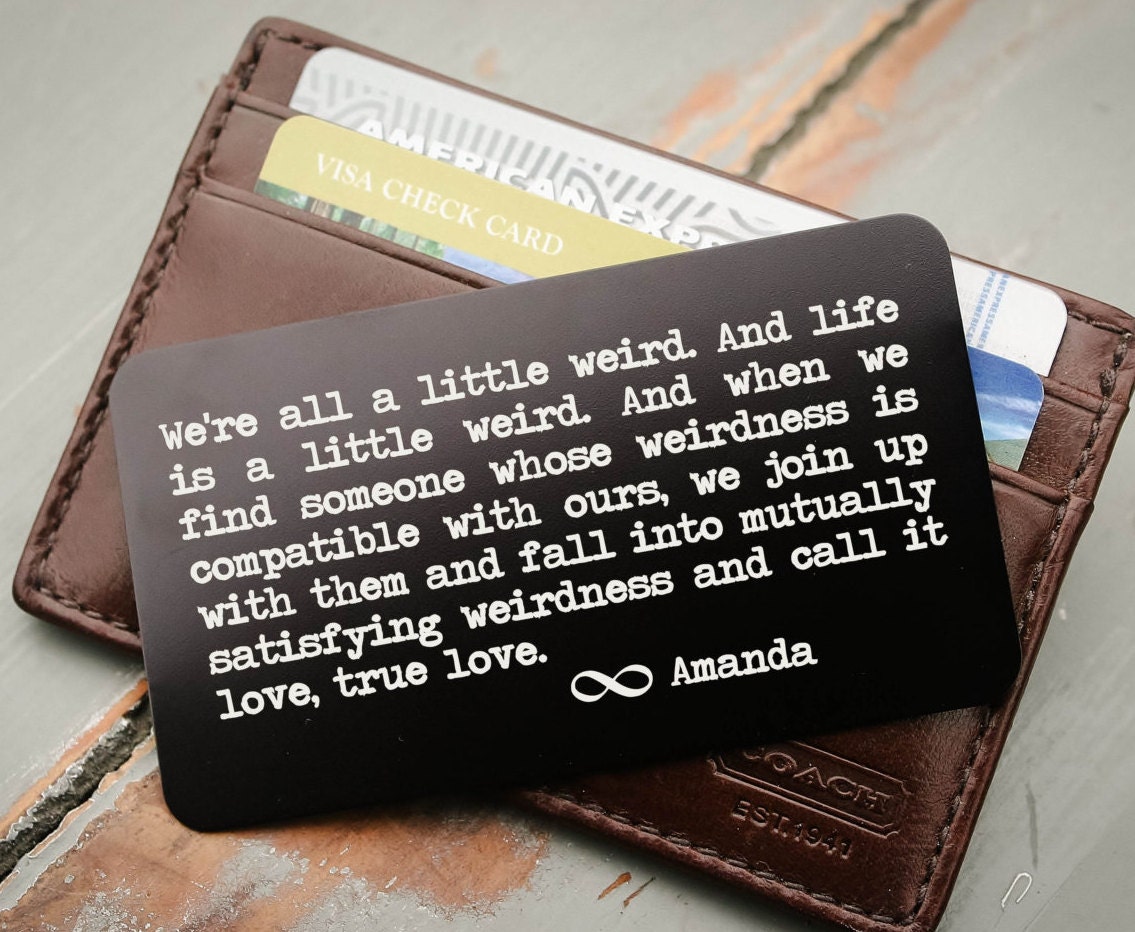 AMERICAN EXPRE
VISA CHECK CARD
We're all a little weird. And life
is a little weird. And when we
find someone whose weirdness is
compatible with ours, we join up
with them and fall into mutually
satisfying weirdness and call it
love, true love.
∞ Amanda
COACH
EST. 1941